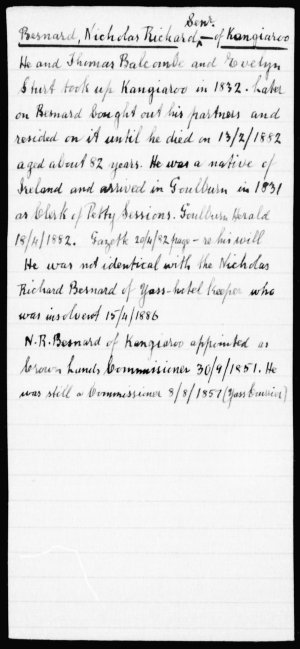 Besnard, Nicholas Richard, Senr. - of Kangiaroo
He and Thomas Balcombe and Evelyn
Sturt took up Kangiaroo in 1832. Later
on Besnard bought out his partners and
resided on it until he died on 13/2/1882
aged about 82 years. He was a native of
Ireland and arrived in Goulburn in 1831
as Clerk of Petty Sessions. Goulburn Herald
18/4/1882. Gazette 20/4/82 page - re his will
He was not identical with the Nicholas
Richard Besnard of Yass - hotel keeper who
was insolvent 15/4/1886
N.R. Besnard of Kangiaroo appointed as
Crown Lands Commissioner 30/9/1851. He
was still a Commissioner 8/8/1857 (Yass Courier)